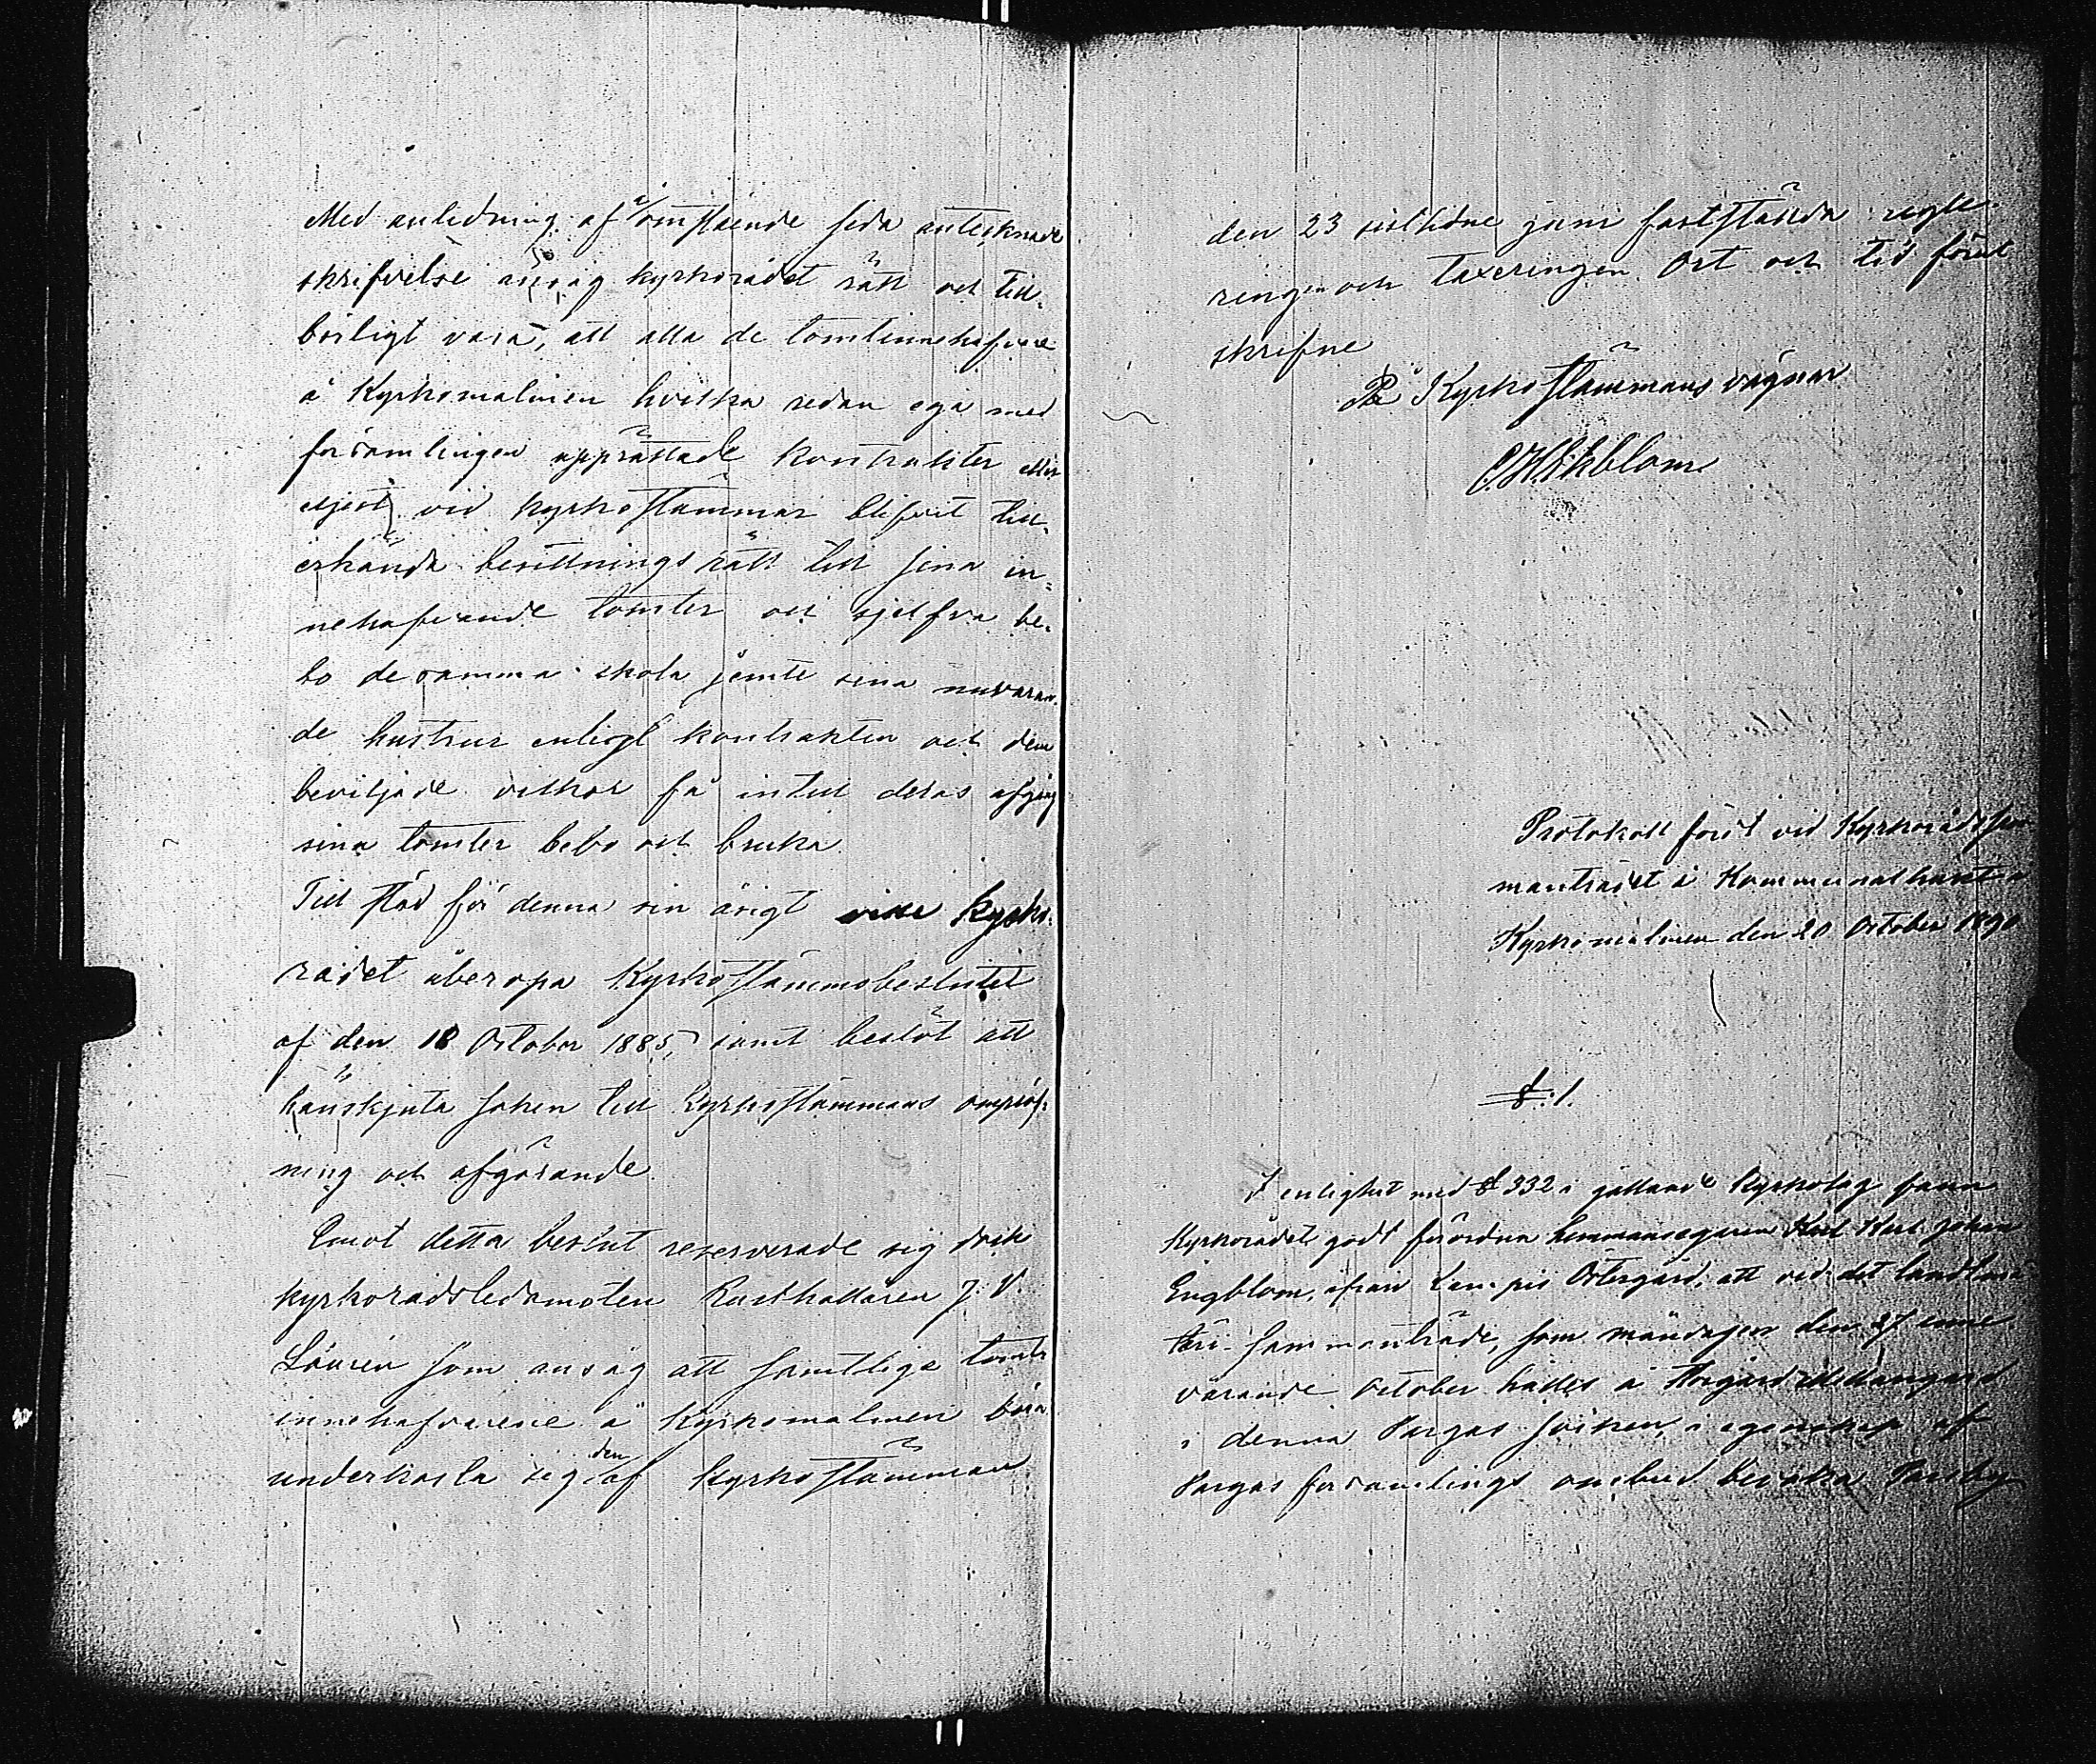 Med anledning af å omstående sida antecknade
skrifvelse ansåg kyrkorådet rätt och till-
börligt vara, att alla de tomtinnehafvare
å Kyrkomalmen hvilka redan ega med
församlingen upprättade kontrakter eller
eljest vid kyrkostämmar blifvit till-
erkända besittningsrätt till sina in-
nehafvande tomter och sjelfva be-
bo desamma skola jemte sina nuvaran-
de hustrur enligt kontrakten och dem
beviljade vilkor få intill deras afgång
sina tomter bebo och bruka.
Till stöd för denna sin åsigt ville kyrko-
rådet åberopa Kyrkostämmobeslutet
af den 18 October 1885, samt beslöt att
hänskjuta saken till Kyrkostämmans ompröf-
ning och afgörande.
Emot detta beslut reserverade sig dock
kyrkorådsledamoten Rusthållaren J. V.
Lönrén som ansåg att samtlige tomt-
innehafvarene å Kyrkomalmen böra
underkasta sig den af Kyrkostämman
den 23 sistlidne juni fastställda regle-
ringen och taxeringen. Ort och tid förut
skrifne
På Kyrkostämmans vägnar
Protokoll fördt vid Kyrkorådssam-
manträdet å Kommunalhuset å
Kyrkomalmen den 20 October 1890
§. 1.
I enlighet med § 332 i gällande Kyrkolag fann
Kyrkorådet godt förordna hemmansegaren Karl Johan
Engblom, ifrån Lempis Östergård, att vid det landtmä-
teri-sammanträde, som måndagen den 27 inne
varande October hålles å Storgård Mellangård
i denna Pargas socken, i egenskap af
Pargas församlings ombud bevaka Parsby